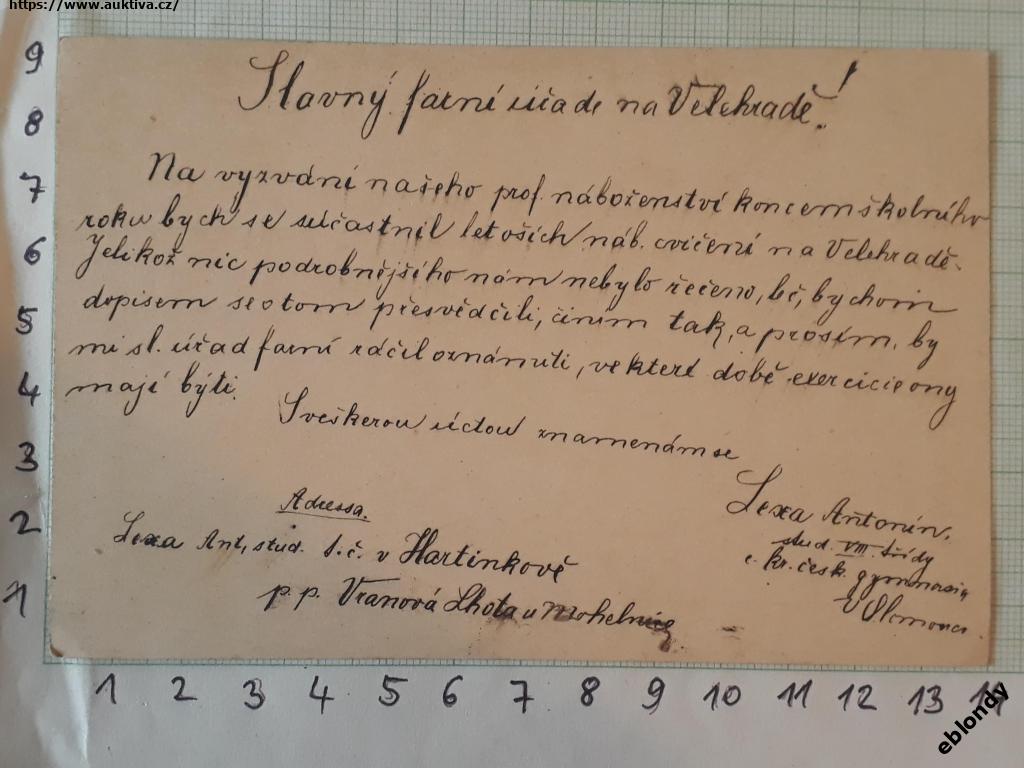 https://www.auktiva.cz/
Slavný farní úřade na Velehradě!
Na vyzvání našeho prof. náboženství koncem školního
roku bych se súčastnil letoších náb. cvičení na Velehradě.
Jelikož nic podrobnějšího nám nebylo řečeno, bč, bychom
dopisem se o tom přesvědčili, činím tak, a prosím, by
mi sl. úřad farní ráčil oznámiti, ve které době exercicie ony
mají býti.
S veškerou úctou znamenám se
Lexa Antonín,
stud. VIII. třídy
c. kr. česk. gymnasia
v Olomouci.
Adressa.
Lexa Ant, stud. t. č. v Hartinkově
p. p. Vranová Lhota u Mohelnice
9
8
7
6
5
4
3
2
1
1 2 3 4 5 6 7 8 9 10 11 12 13 14
eblondy